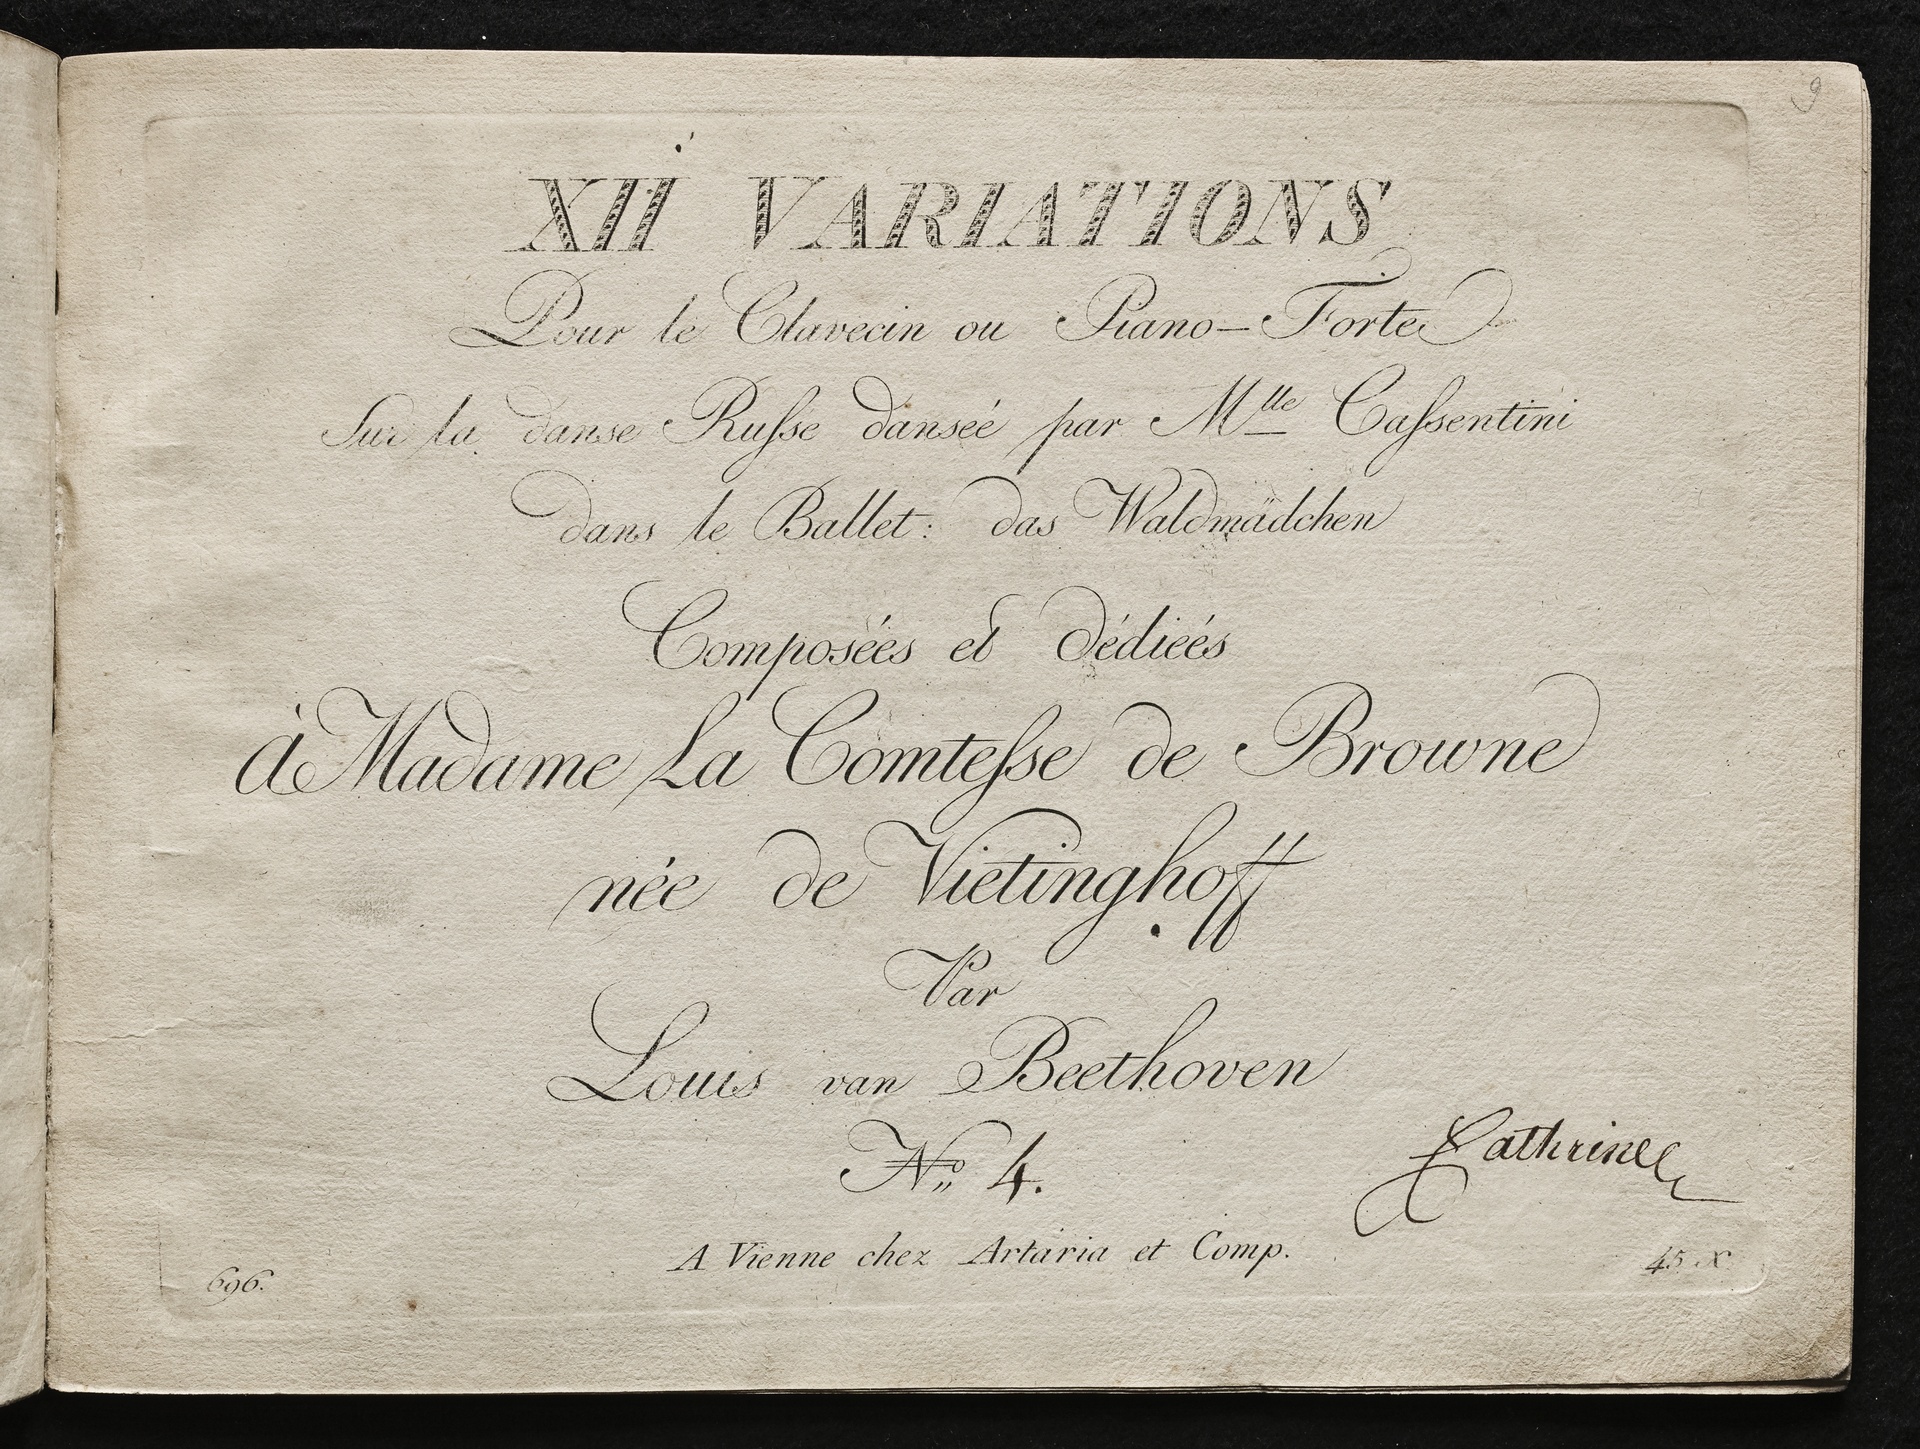 9
XII VARIATIONS
Pour le Clavecin ou Piano-Forte
Sur la danse Ruſse danseé par Mlle Caſsentini
dans le Ballet: das Waldmädchen
Composéés et dédieés
à Madame La Comteſse de Browne
née de Vietinghoff
Par
Louis van Beethoven
No. 4.
Cathrine
A Vienne chez Artaria et Comp.
696.
45 x